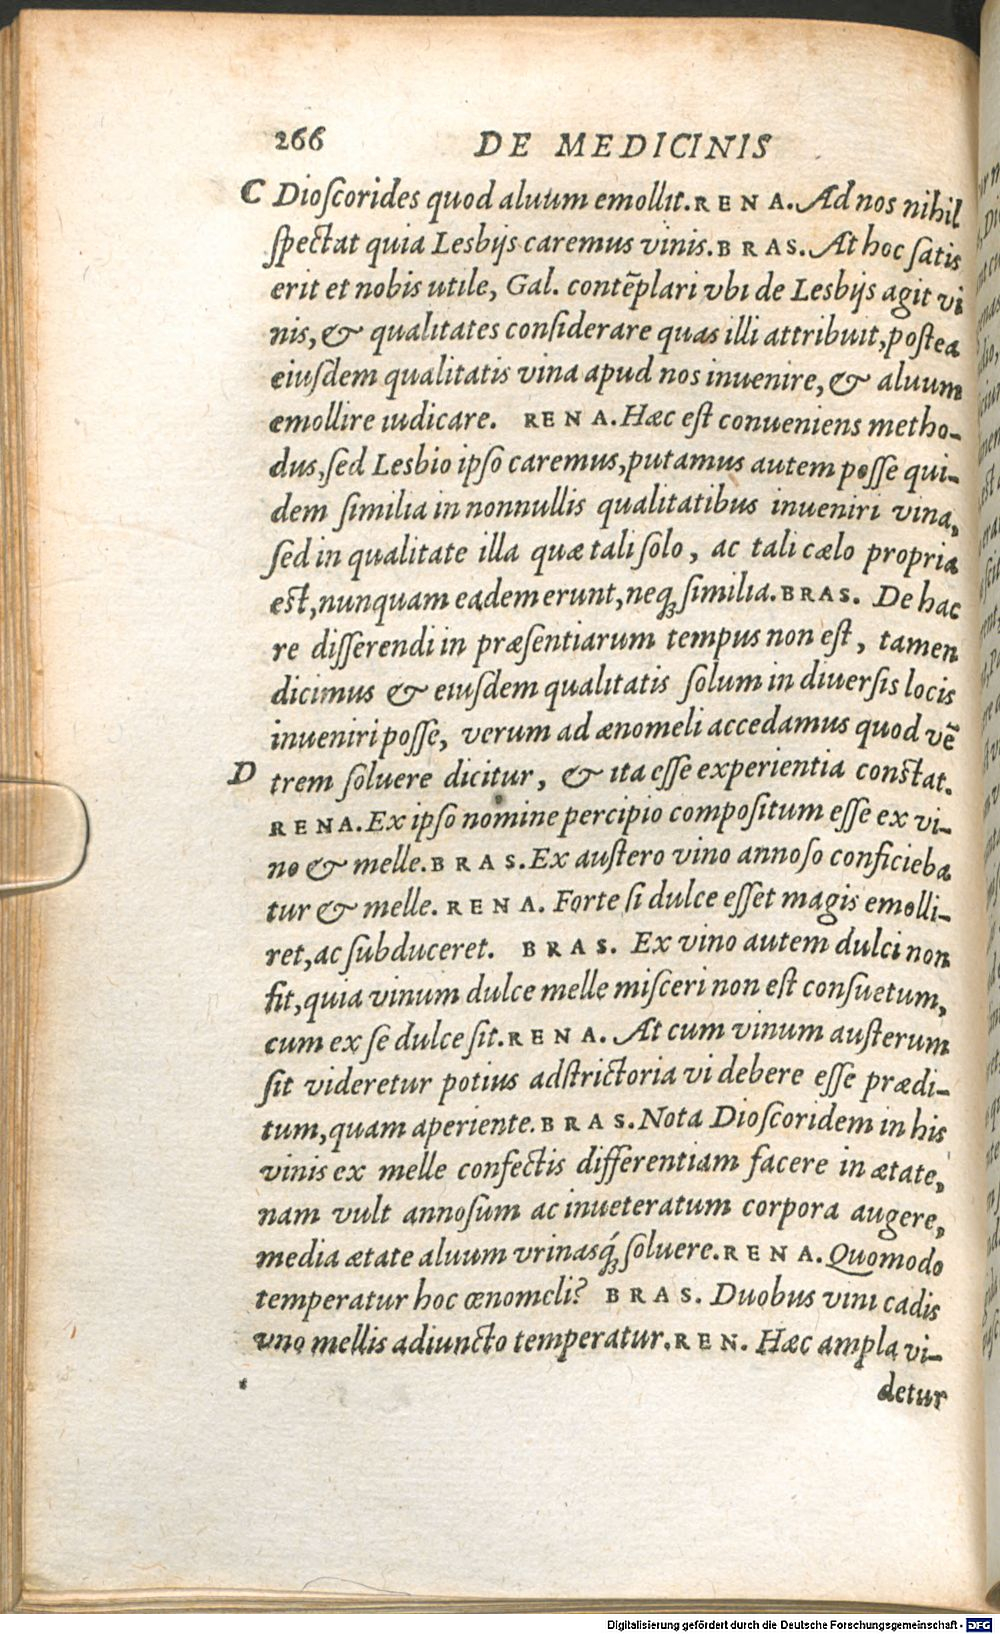 266 DE MEDICINIS
C Dioſcorides quod aluum emollit. RENA. Ad nos nihil
ſpectat quia Lesbijs caremus vinis. BRAS. At hoc ſatis
erit et nobis utile, Gal. contẽplari vbi de Lesbijs agit vi
nis, & qualitates conſiderare quas illi attribuit, poſtea
eiuſdem qualitatis vina apud nos inuenire, & aluum
emollire iudicare. RENA. Hæc eſt conueniens metho-
dus, ſed Lesbio ipſo caremus, putamus autem poſſe qui-
dem ſimilia in nonnullis qualitatibus inueniri vina,
ſed in qualitate illa quæ tali ſolo, ac tali cælo propria
eſt, nunquam eadem erunt, neqꝫ ſimilia. BRAS. De hac
re diſſerendi in præſentiarum tempus non eſt, tamen
dicimus & eiuſdem qualitatis ſolum in diuerſis locis
inueniri poſſe, verum ad ænomeli accedamus quod vẽ
D trem ſoluere dicitur, & ita eſſe experientia conſtat.
RENA. Ex ipſo nomine percipio compoſitum eſſe ex vi-
no & melle. BRAS. Ex auſtero vino annoſo conficieba
tur & melle. RENA. Forte ſi dulce eſſet magis emolli-
ret, ac ſubduceret. BRAS. Ex vino autem dulci non
fit, quia vinum dulce melle miſceri non eſt conſuetum,
cum ex ſe dulce ſit. RENA. At cum vinum auſterum
ſit videretur potius adſtrictoria vi debere eſſe prædi-
tum, quam aperiente. BRAS. Nota Dioſcoridem in his
vinis ex melle confectis differentiam facere in ætate,
nam vult annoſum ac inueteratum corpora augere,
media ætate aluum vrinasqꝫ́ ſoluere. RENA. Quomodo
temperatur hoc œnomeli? BRAS. Duobus vini cadis
vno mellis adiuncto temperatur. REN. Hæc ampla vi-
detur
Digitalisierung gefördert durch die Deutsche Forschungsgemeinschaft - DFG